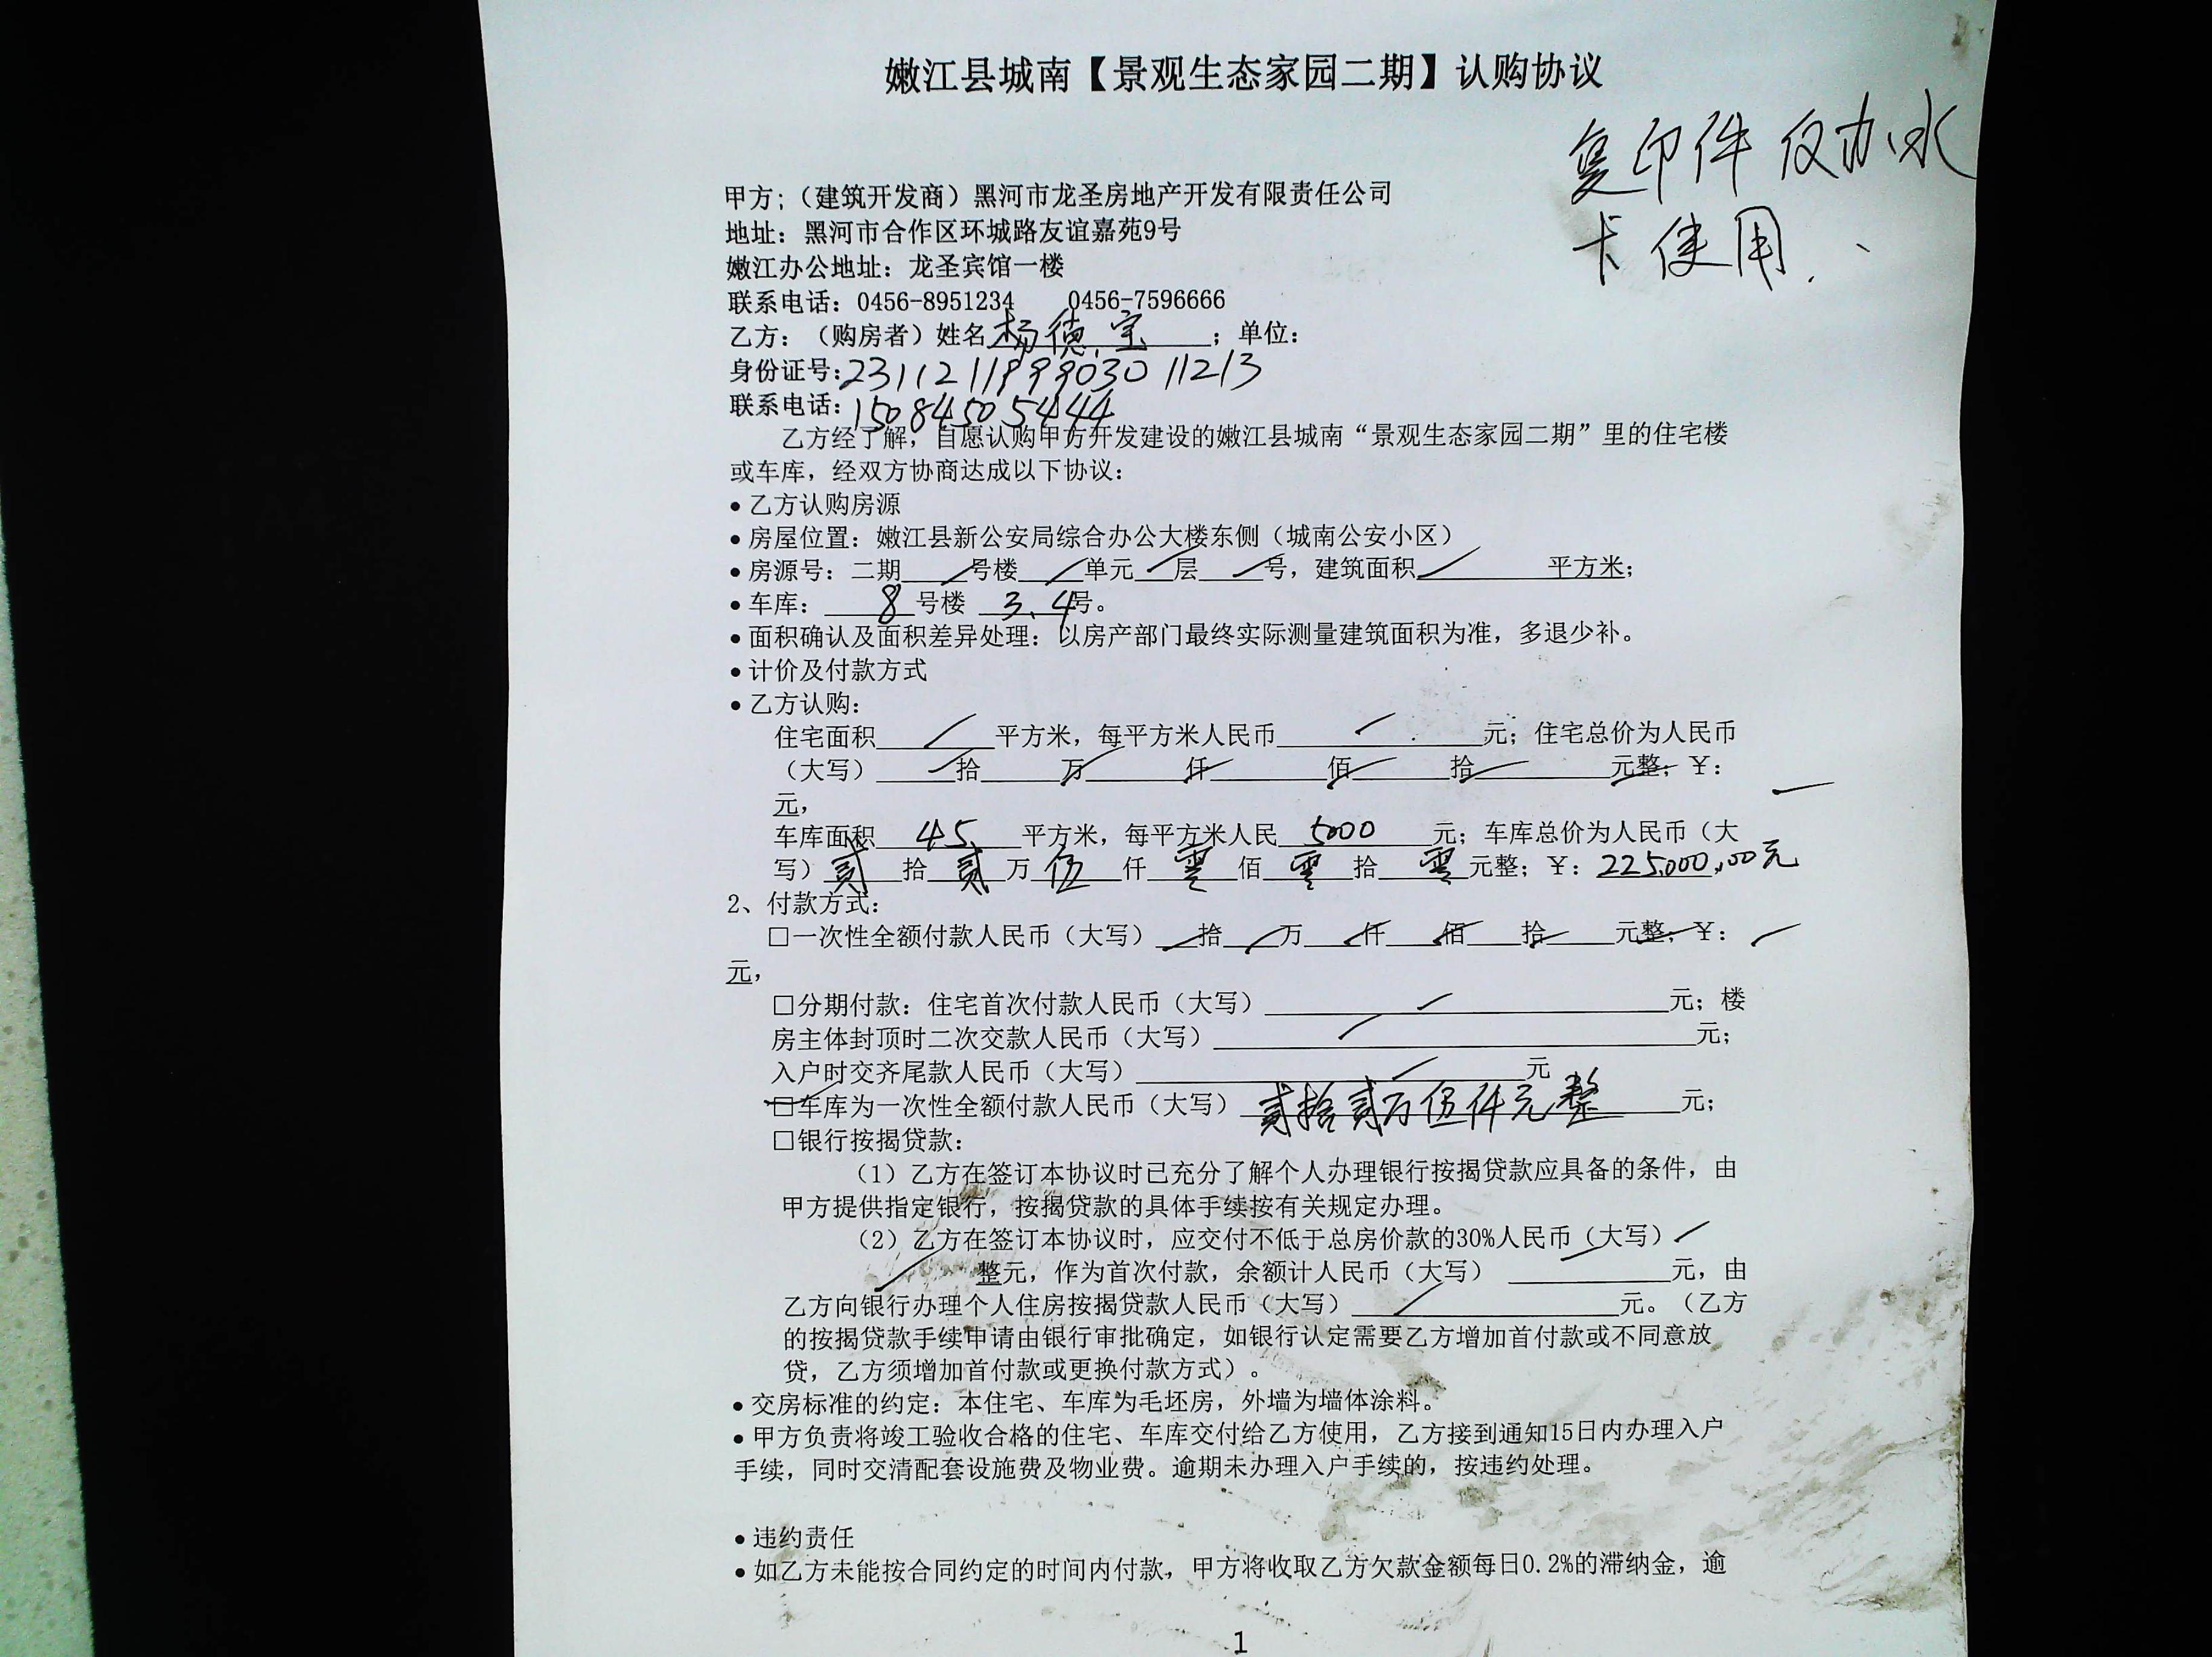 嫩江县城南【景观生态家园二期】认购协议
复印件 仅办水
卡使用.
甲方;（建筑开发商）黑河市龙圣房地产开发有限责任公司
地址：黑河市合作区环城路友谊嘉苑9号
嫩江办公地址：龙圣宾馆一楼
联系电话：0456-8951234 0456-7596666
乙方：（购房者）姓名杨德宝；单位：
身份证号:
联系电话:15084505444
乙方经了解，自愿认购甲方开发建设的嫩江县城南“景观生态家园二期”里的住宅楼
或车库，经双方协商达成以下协议：
•乙方认购房源
•房屋位置：嫩江县新公安局综合办公大楼东侧（城南公安小区）
•房源号：二期____号楼____单元___层____号，建筑面积________平方米；
•车库：8号楼 3、4号。
•面积确认及面积差异处理：以房产部门最终实际测量建筑面积为准，多退少补。
•计价及付款方式
•乙方认购：
住宅面积________平方米，每平方米人民币________元；住宅总价为人民币
（大写）____拾____万____仟____佰____拾____元整；￥：
元，
车库面积 45 平方米，每平方米人民 5000 元；车库总价为人民币（大
写）贰拾贰万伍仟零佰零拾零元整；￥：225000.00元
2、付款方式：
□一次性全额付款人民币（大写）___拾___万___仟___佰___拾___元整；￥：
元，
□分期付款：住宅首次付款人民币（大写）________元；楼
房主体封顶时二次交款人民币（大写）________元；
入户时交齐尾款人民币（大写）________元
□车库为一次性全额付款人民币（大写）贰拾贰万伍仟元整元；
□银行按揭贷款：
（1）乙方在签订本协议时已充分了解个人办理银行按揭贷款应具备的条件，由
甲方提供指定银行，按揭贷款的具体手续按有关规定办理。
（2）乙方在签订本协议时，应交付不低于总房价款的30%人民币（大写）
整元，作为首次付款，余额计人民币（大写）________元，由
乙方向银行办理个人住房按揭贷款人民币（大写）________元。（乙方
的按揭贷款手续申请由银行审批确定，如银行认定需要乙方增加首付款或不同意放
贷，乙方须增加首付款或更换付款方式）。
•交房标准的约定：本住宅、车库为毛坯房，外墙为墙体涂料。
•甲方负责将竣工验收合格的住宅、车库交付给乙方使用，乙方接到通知15日内办理入户
手续，同时交清配套设施费及物业费。逾期未办理入户手续的，按违约处理。
•违约责任
•如乙方未能按合同约定的时间内付款，甲方将收取乙方欠款金额每日0.2%的滞纳金，逾
1